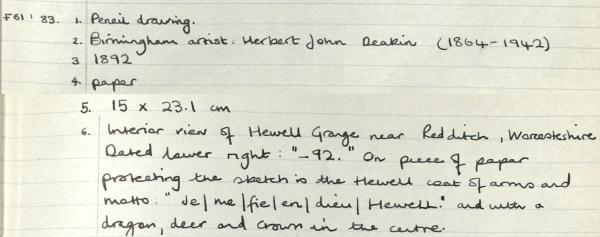 F61: 83. 1. Pencil drawing.
2. Birmingham artist: Herbert John Deakin (1864-1942)
3 1892
4. paper
5. 15 x 23.1 cm
6. Interior view of Hewell Grange near Redditch, Worcesteshire
Dated lower right: "-92." On piece of paper
protecting the sketch is the Hewell coat of arms and
motto: "Je/me/fie/en/dieu/Hewell." and with a
dragon, deer and crown in the centre.